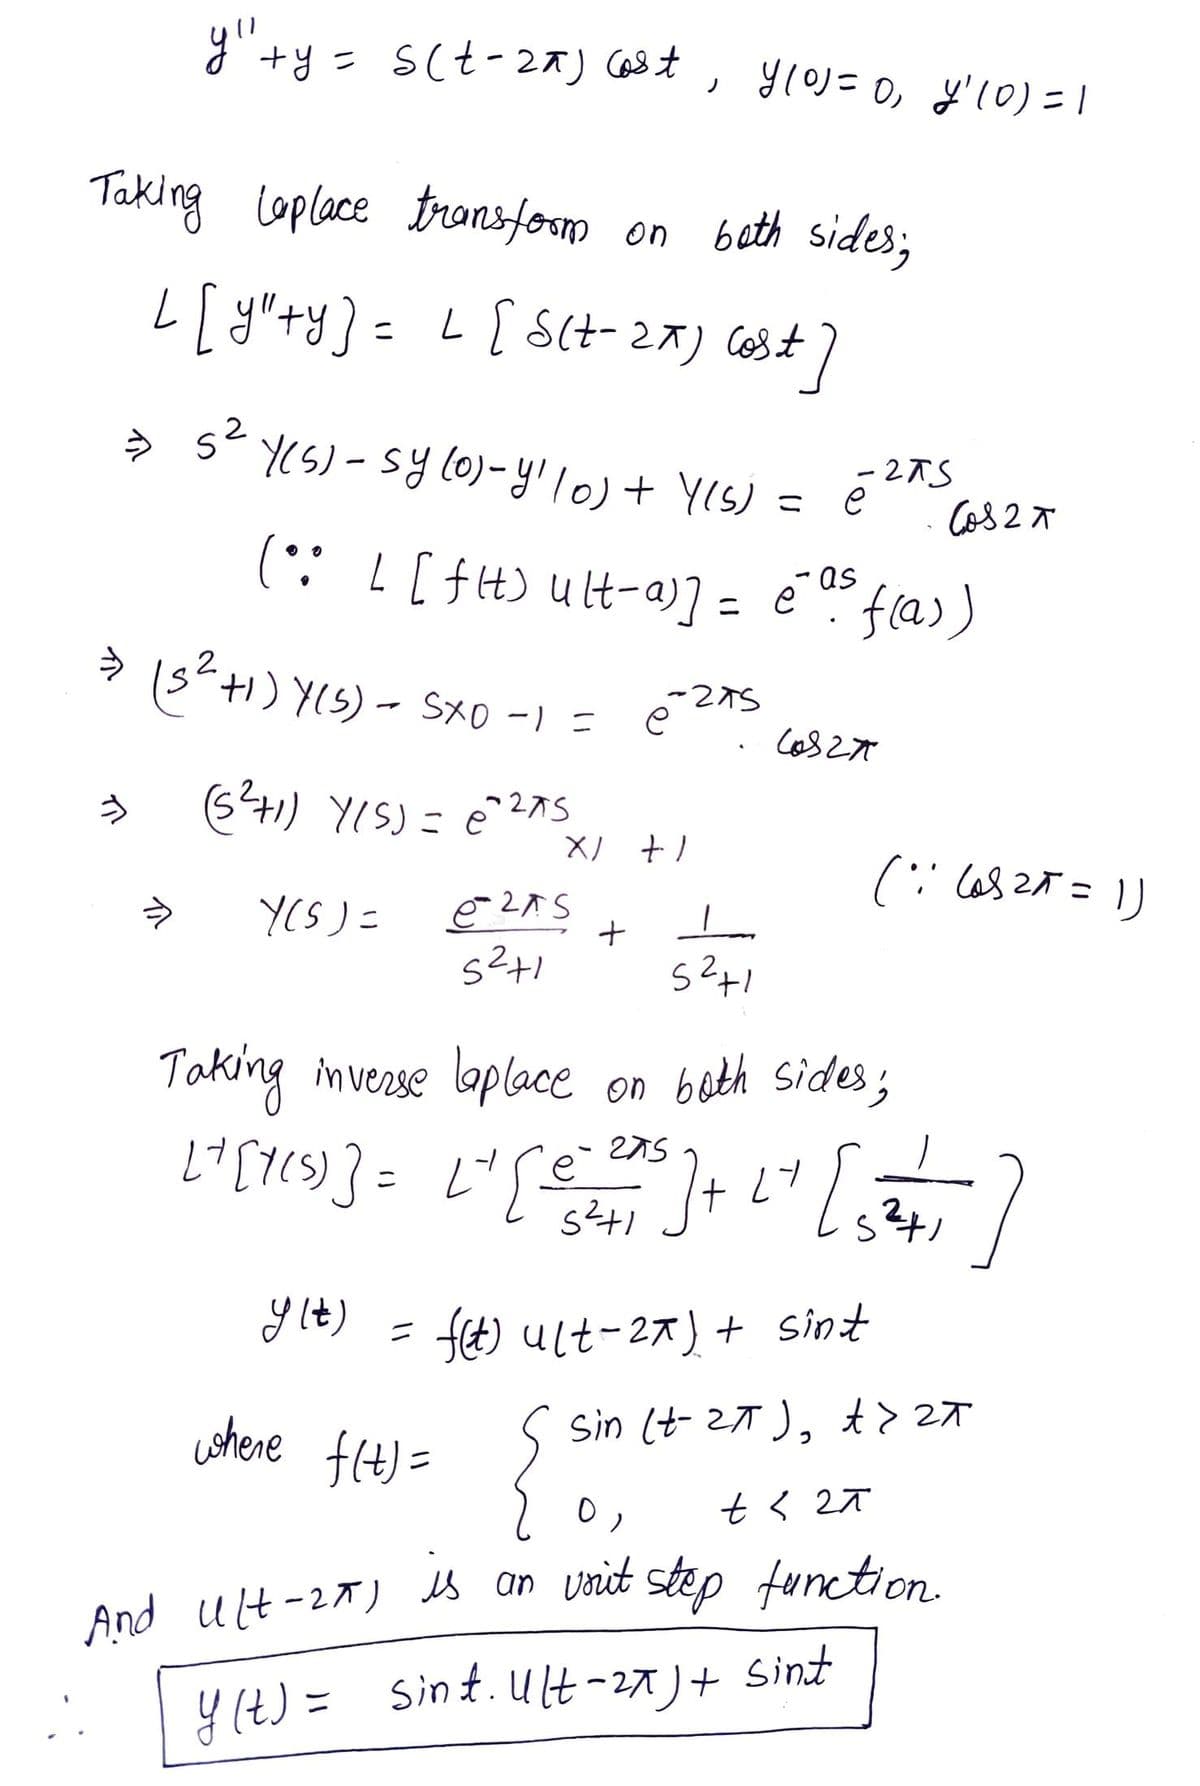 y''+y = δ(t-2π) cost , y(0)=0, y'(0)=1
Taking laplace transform on both sides;
L[y''+y] = L[δ(t-2π) cost]
⇒ s² Y(s) - sy(0)-y'(0) + Y(s) = e^{-2πs} . cos2π
(∵ L[f(t) u(t-a)] = e^{-as} . f(a))
⇒ (s²+1) Y(s) - s×0 -1 = e^{-2πs} . cos2π
⇒ (s²+1) Y(s) = e^{-2πs} ×1 +1
(∵ cos2π = 1)
⇒ Y(s) = e^{-2πs}/(s²+1) + 1/(s²+1)
Taking inverse laplace on both sides;
L⁻¹[Y(s)] = L⁻¹[e^{-2πs}/(s²+1)] + L⁻¹[1/(s²+1)]
y(t) = f(t) u(t-2π) + sint
where f(t) = { sin(t-2π), t > 2π
0, t < 2π
And u(t-2π) is an unit step function.
∴ y(t) = sint. u(t-2π) + sint